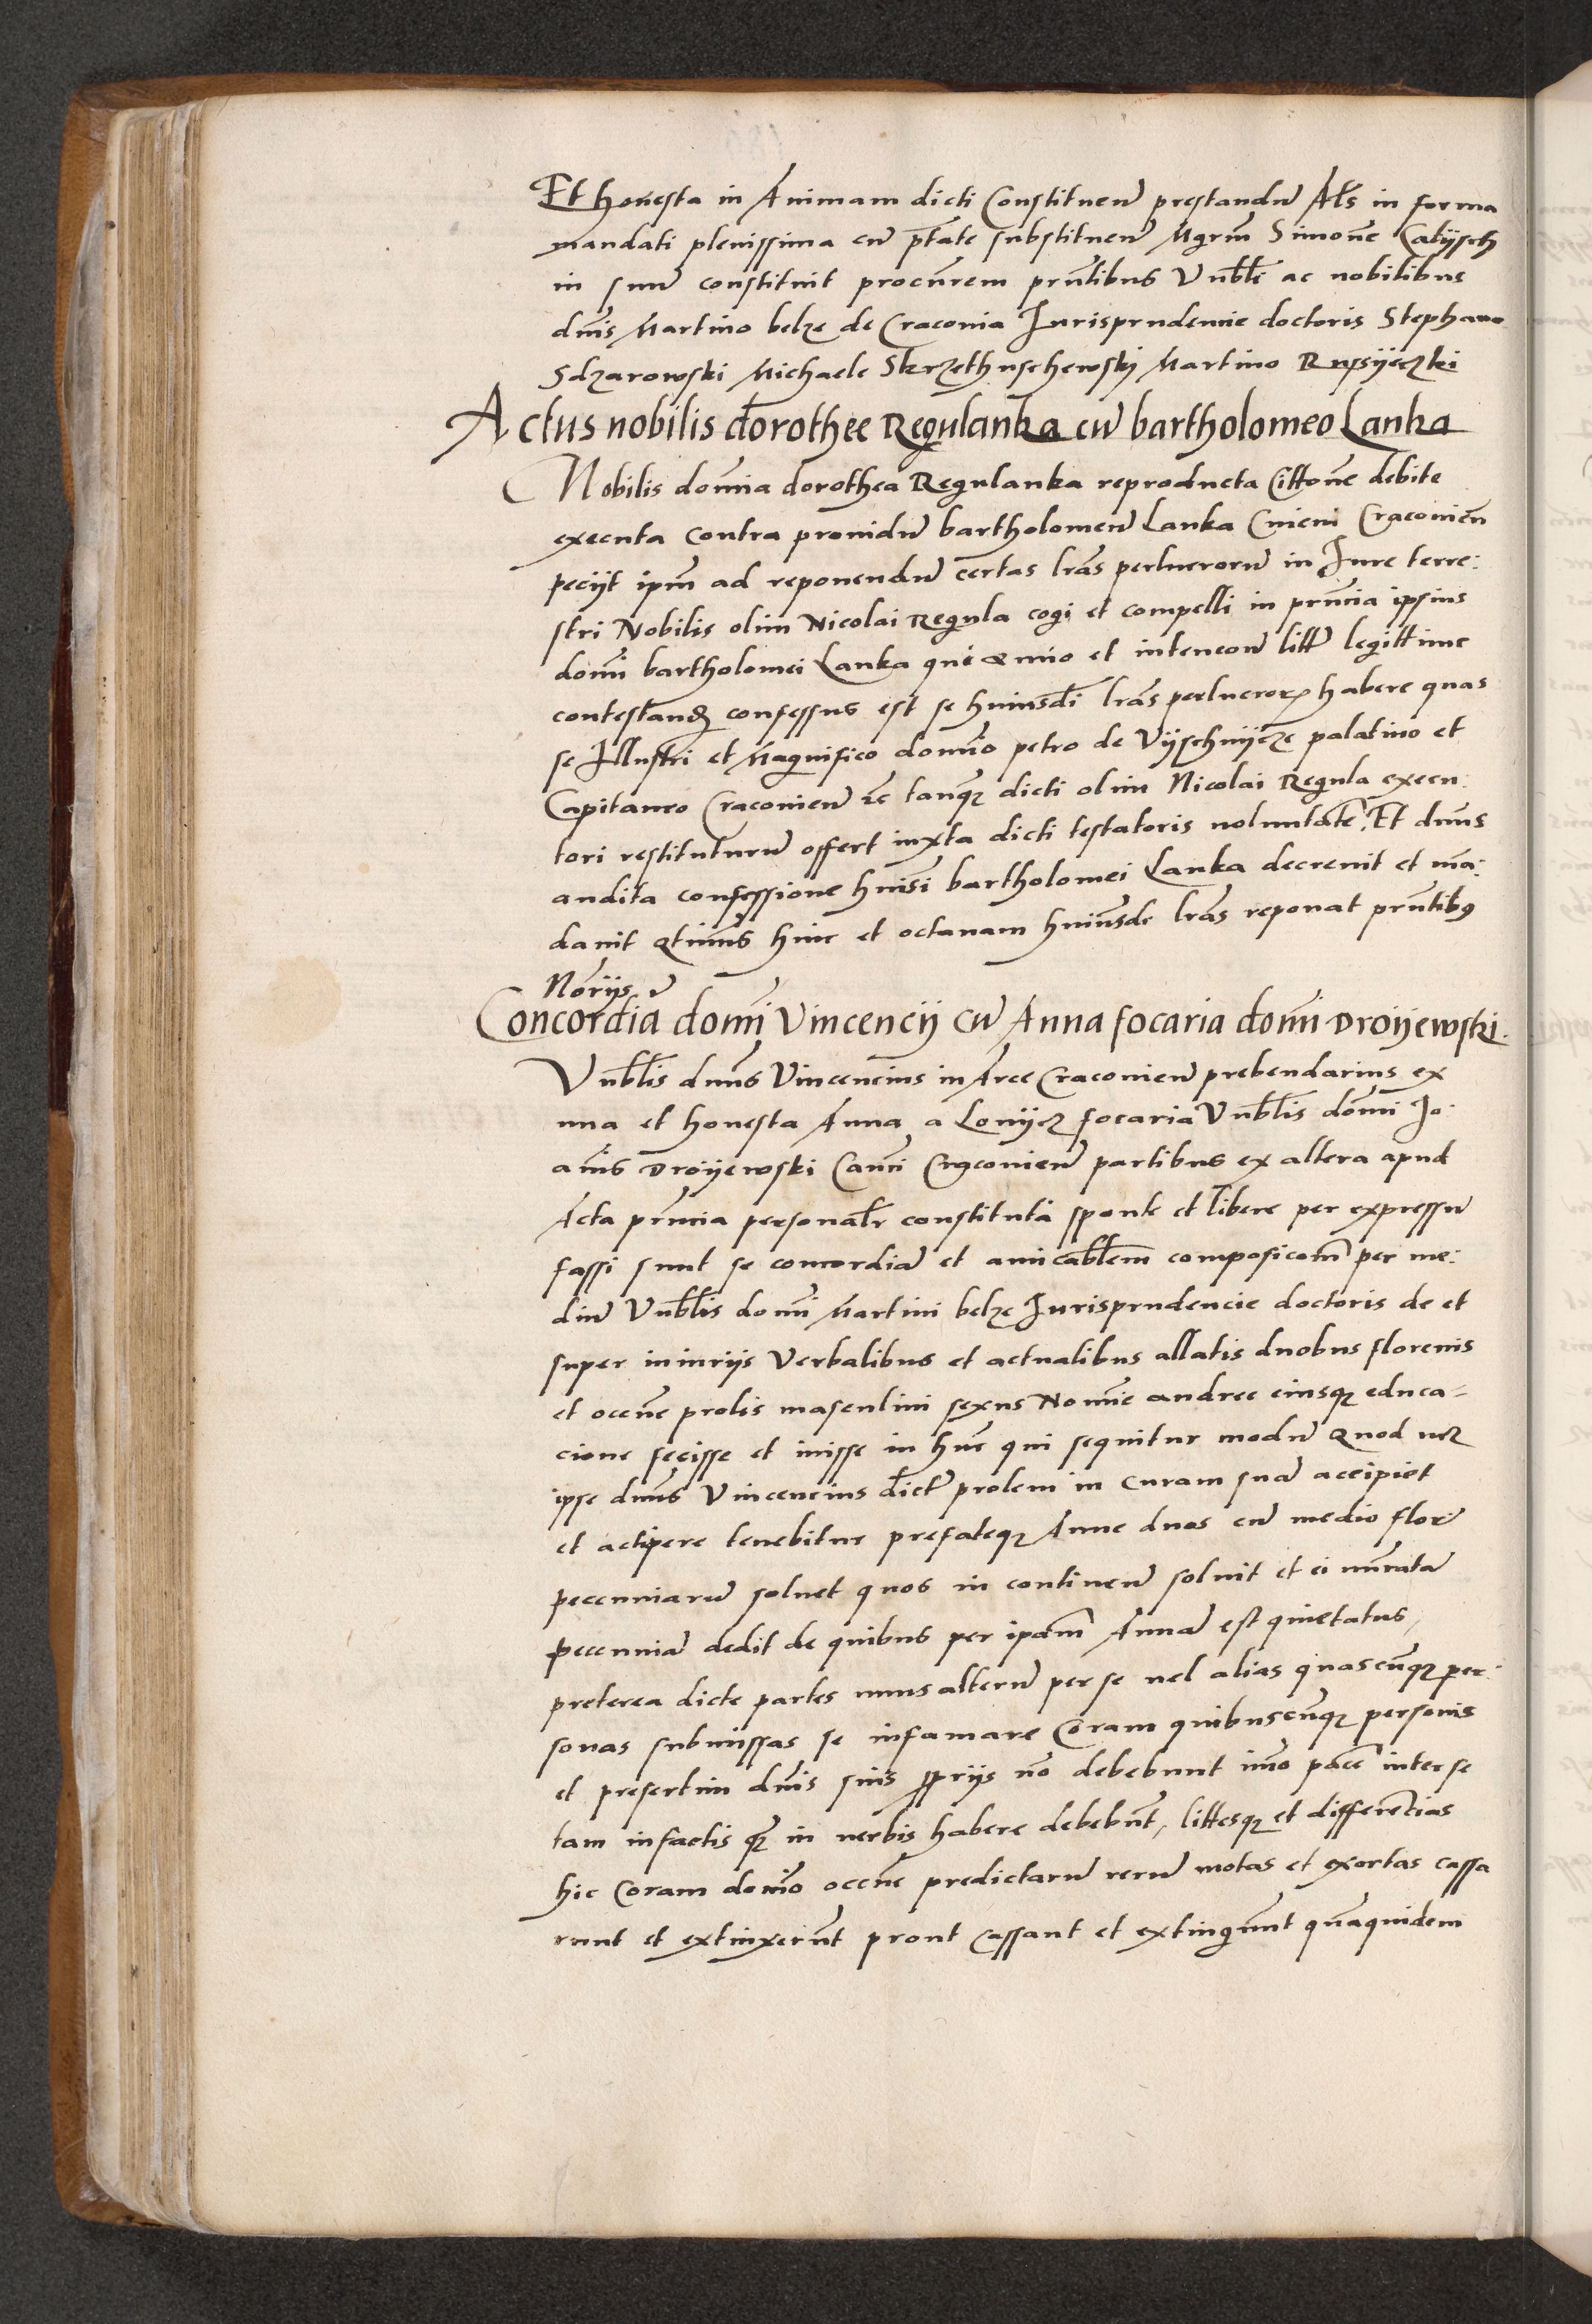 Et honesta in Animam dicti Constituen̄ prestandū Als̄ in forma
mandati plenissima cū pt̄ate substituen̄ Mgrm̄ Simonē Calijsch
in suum constituit procur̄em prn̄tibus Vnbl̄i ac nobilibus
dn̄is Martino belze de Cracouia Iurisprudencie doctoris Stephano
Sdzarowski Michaele Skrzethuschewskj Martino Rusijeczki
Actus nobilis dorothee Regulanka cū bartholomeo Lanka
Nobilis domīa dorothea Regulanka reproducta Citt̄one debite
executa Contra prouidū bartholomeū Lanka Ciuem Cracouien̄
pecijt ipm̄ ad reponendū certas lrās perlucrorū in Iure terre:
stri Nobilis olim Nicolai Regula cogi et compelli in prn̄cia ipsius
domi bartholomei Lanka qui aīmo et intencōn littm̄ legittime
contestand confessus est se huiusdi lrās perlucror habere quas
se Illustri et Magnifico domīo petro de Vijschnijcze palatino et
Capitaneo Cracouien̄ zc̄ tanqz dicti olim Nicolai Regula execu:
tori restituturū offert iuxta dicti testatoris voluntatē. Et dnūs
audita confessione huisī bartholomei Lanka decreuit et mā:
dauit qtinus hinc et octauam huiusde lrās reponat prn̄tibus
Nōrijs
Concordia domī Vincencij cū Anna focaria domī Droijewski.
Vnbl̄is dnūs Vincencius in Arce Cracouien̄ prebendarius ex
una et honesta Anna a Lonijcz focaria Vnbl̄is domī Jo:
anīs Droijewski Canci Cracouien̄ partibus ex altera apud
Acta prn̄cia personalr̄ constituta sponte et libere per expressū
fassi sunt se concordiā et amicabl̄em composicom̄ per me:
diū Vnbl̄is domī Martini belze Iurisprudencie doctoris de et
super iniurijs Verbalibus et actualibus allatis duobus florenis
et occn̄e prolis masculini sexus Nomīe andree eiusqz educa=
cione fecisse et inisse in hūc qui sequitur modū Quod uz
ipse dnūs Vincencius dictā prolem in Curam suā accipiet
et accipere tenebitur prefateqz Anne duos cū medio flor̄
pecuniarū soluet quos in continen̄ soluit et ei nūratā
pecuniā dedit de quibus per ipam̄ Annā est quietatus,
preterea dicte partes unus alterū per se uel alias quascūqz per:
sonas submissas se infamare Coram quibuscūqz personis
et presertim dnīs suis propriis nō debebunt imō pacē inter se
tam infactis qz in uerbis habere debebūt, littesqz et differēcias
hic Coram domīo occn̄e predictarū rerū motas et exortas cassa
runt et extinxerūt prout Cassant et extingunt quāquidem